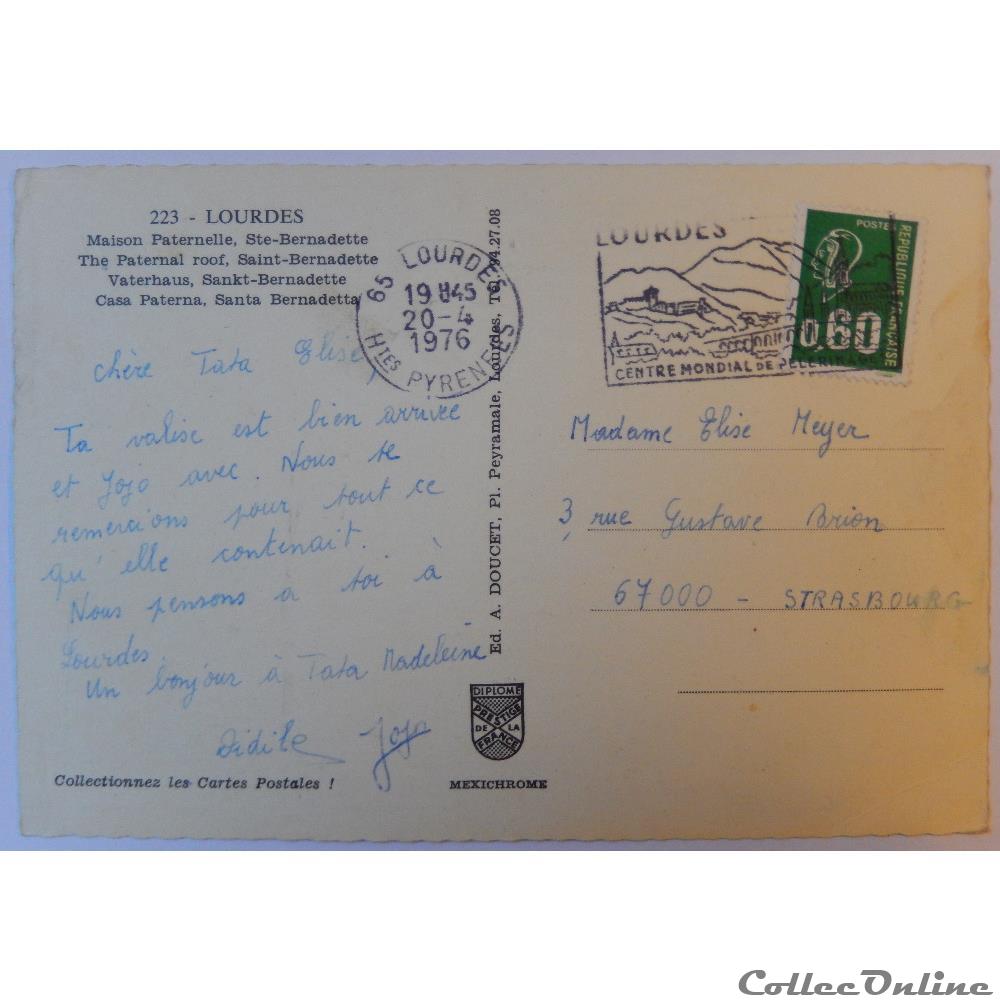 223 - LOURDES
Maison Paternelle, Ste-Bernadette
The Paternal roof, Saint-Bernadette
Vaterhaus, Sankt-Bernadette
Casa Paterna, Santa Bernadetta
65 LOURDES
19H45
20-4
1976
HTES PYRENEES
chère Tata Elise,
Ta valise est bien arrivée
et Jojo avec. Nous te
remercions pour tout ce
qu'elle contenait.
Nous pensons à toi à
Lourdes.
Un bonjour à Tata Madeleine
Jojo
Collectionnez les Cartes Postales !
Ed. A. DOUCET, Pl. Peyramale, Lourdes, Tél. 94.27.08
DIPLOME
PRESTIGE
DE LA
FRANCE
MEXICHROME
LOURDES
CENTRE MONDIAL DE PELERINAGE
POSTES
REPUBLIQUE FRANCAISE
0.60
Madame Elise Meyer
3, rue Gustave Brion
67000 - STRASBOURG
CollecOnline